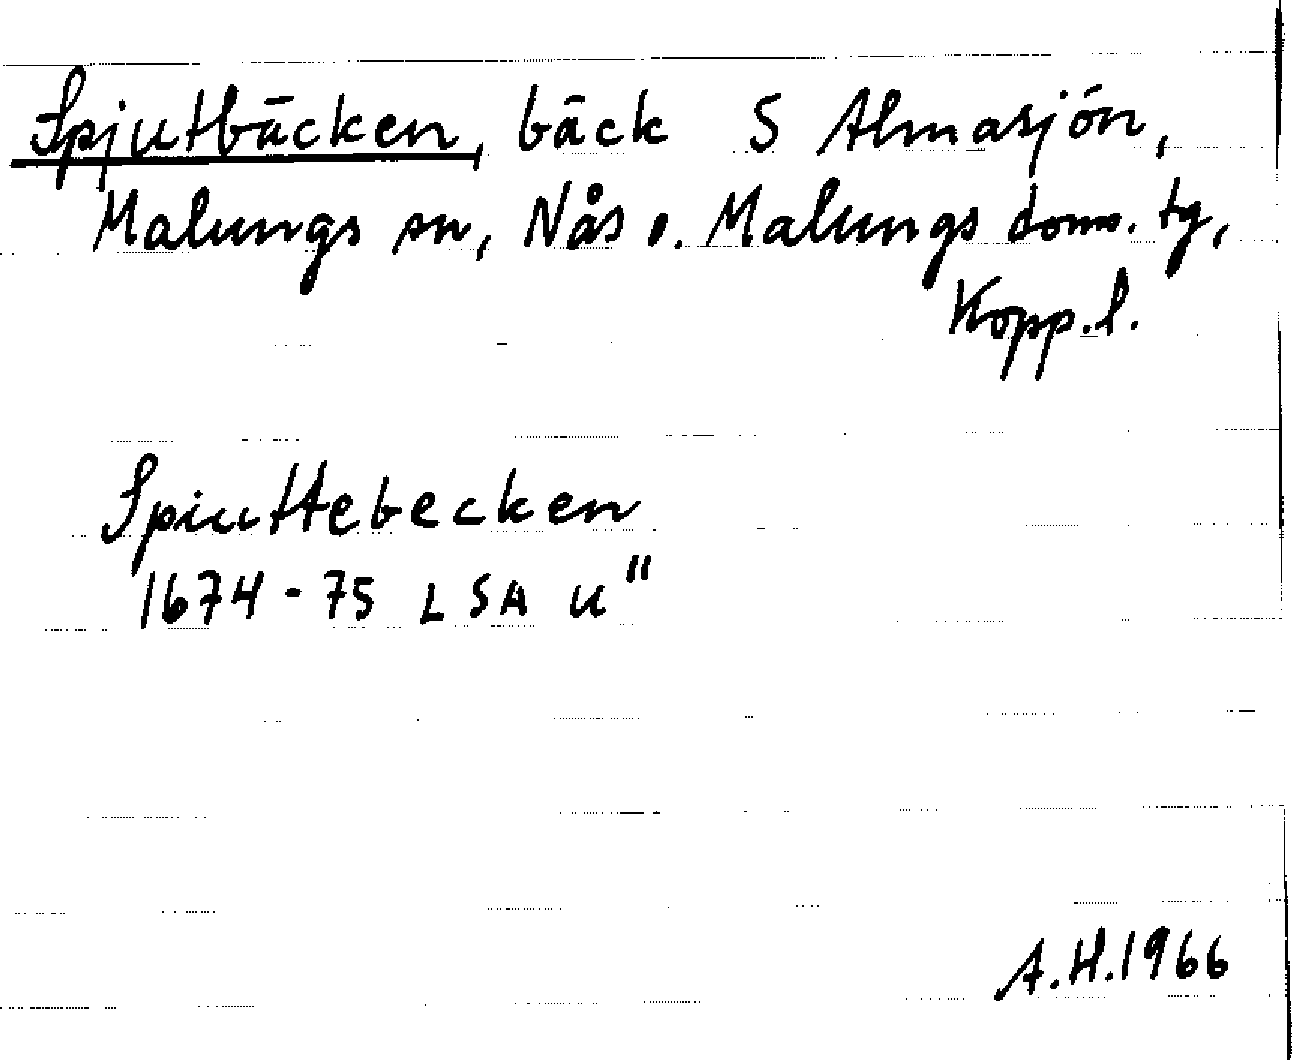 Spjutbäcken, bäck S Almasjön,
Malungs sn, Nås o. Malungs doms. tg,
Kopp.l.
Spiuttebecken
1674-75 LSA u"
A.H.1966